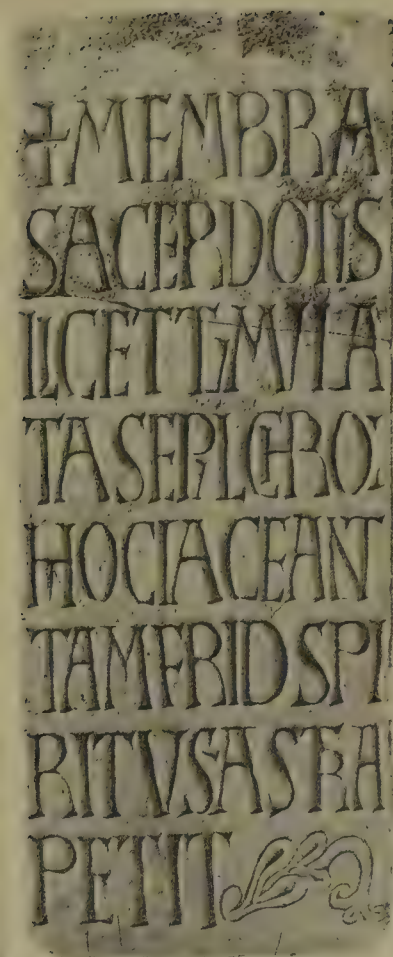 +MEMBRA
SACERDOTIS
LICETTVMVLA
TASEPVLCHRO:
HOCIACEANT
TAMFRIDSPI
RITVSASTRA
PETIT